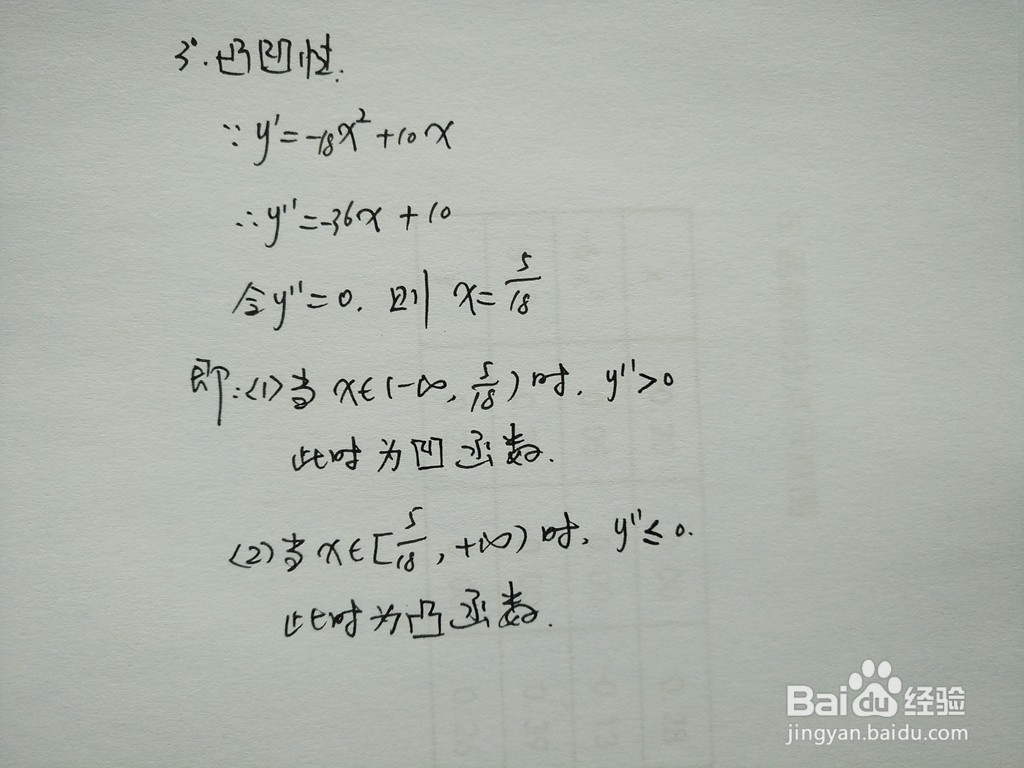 3°.凸凹性:
∵ y'=-18x²+10x
∴ y''=-36x+10
令y''=0. 则 x=5/18
即:<1>当 x∈(-∞, 5/18)时, y''>0
此时为凹函数.
<2>当 x∈[5/18, +∞)时, y''≤0.
此时为凸函数.
Baidu经验
jingyan.baidu.com